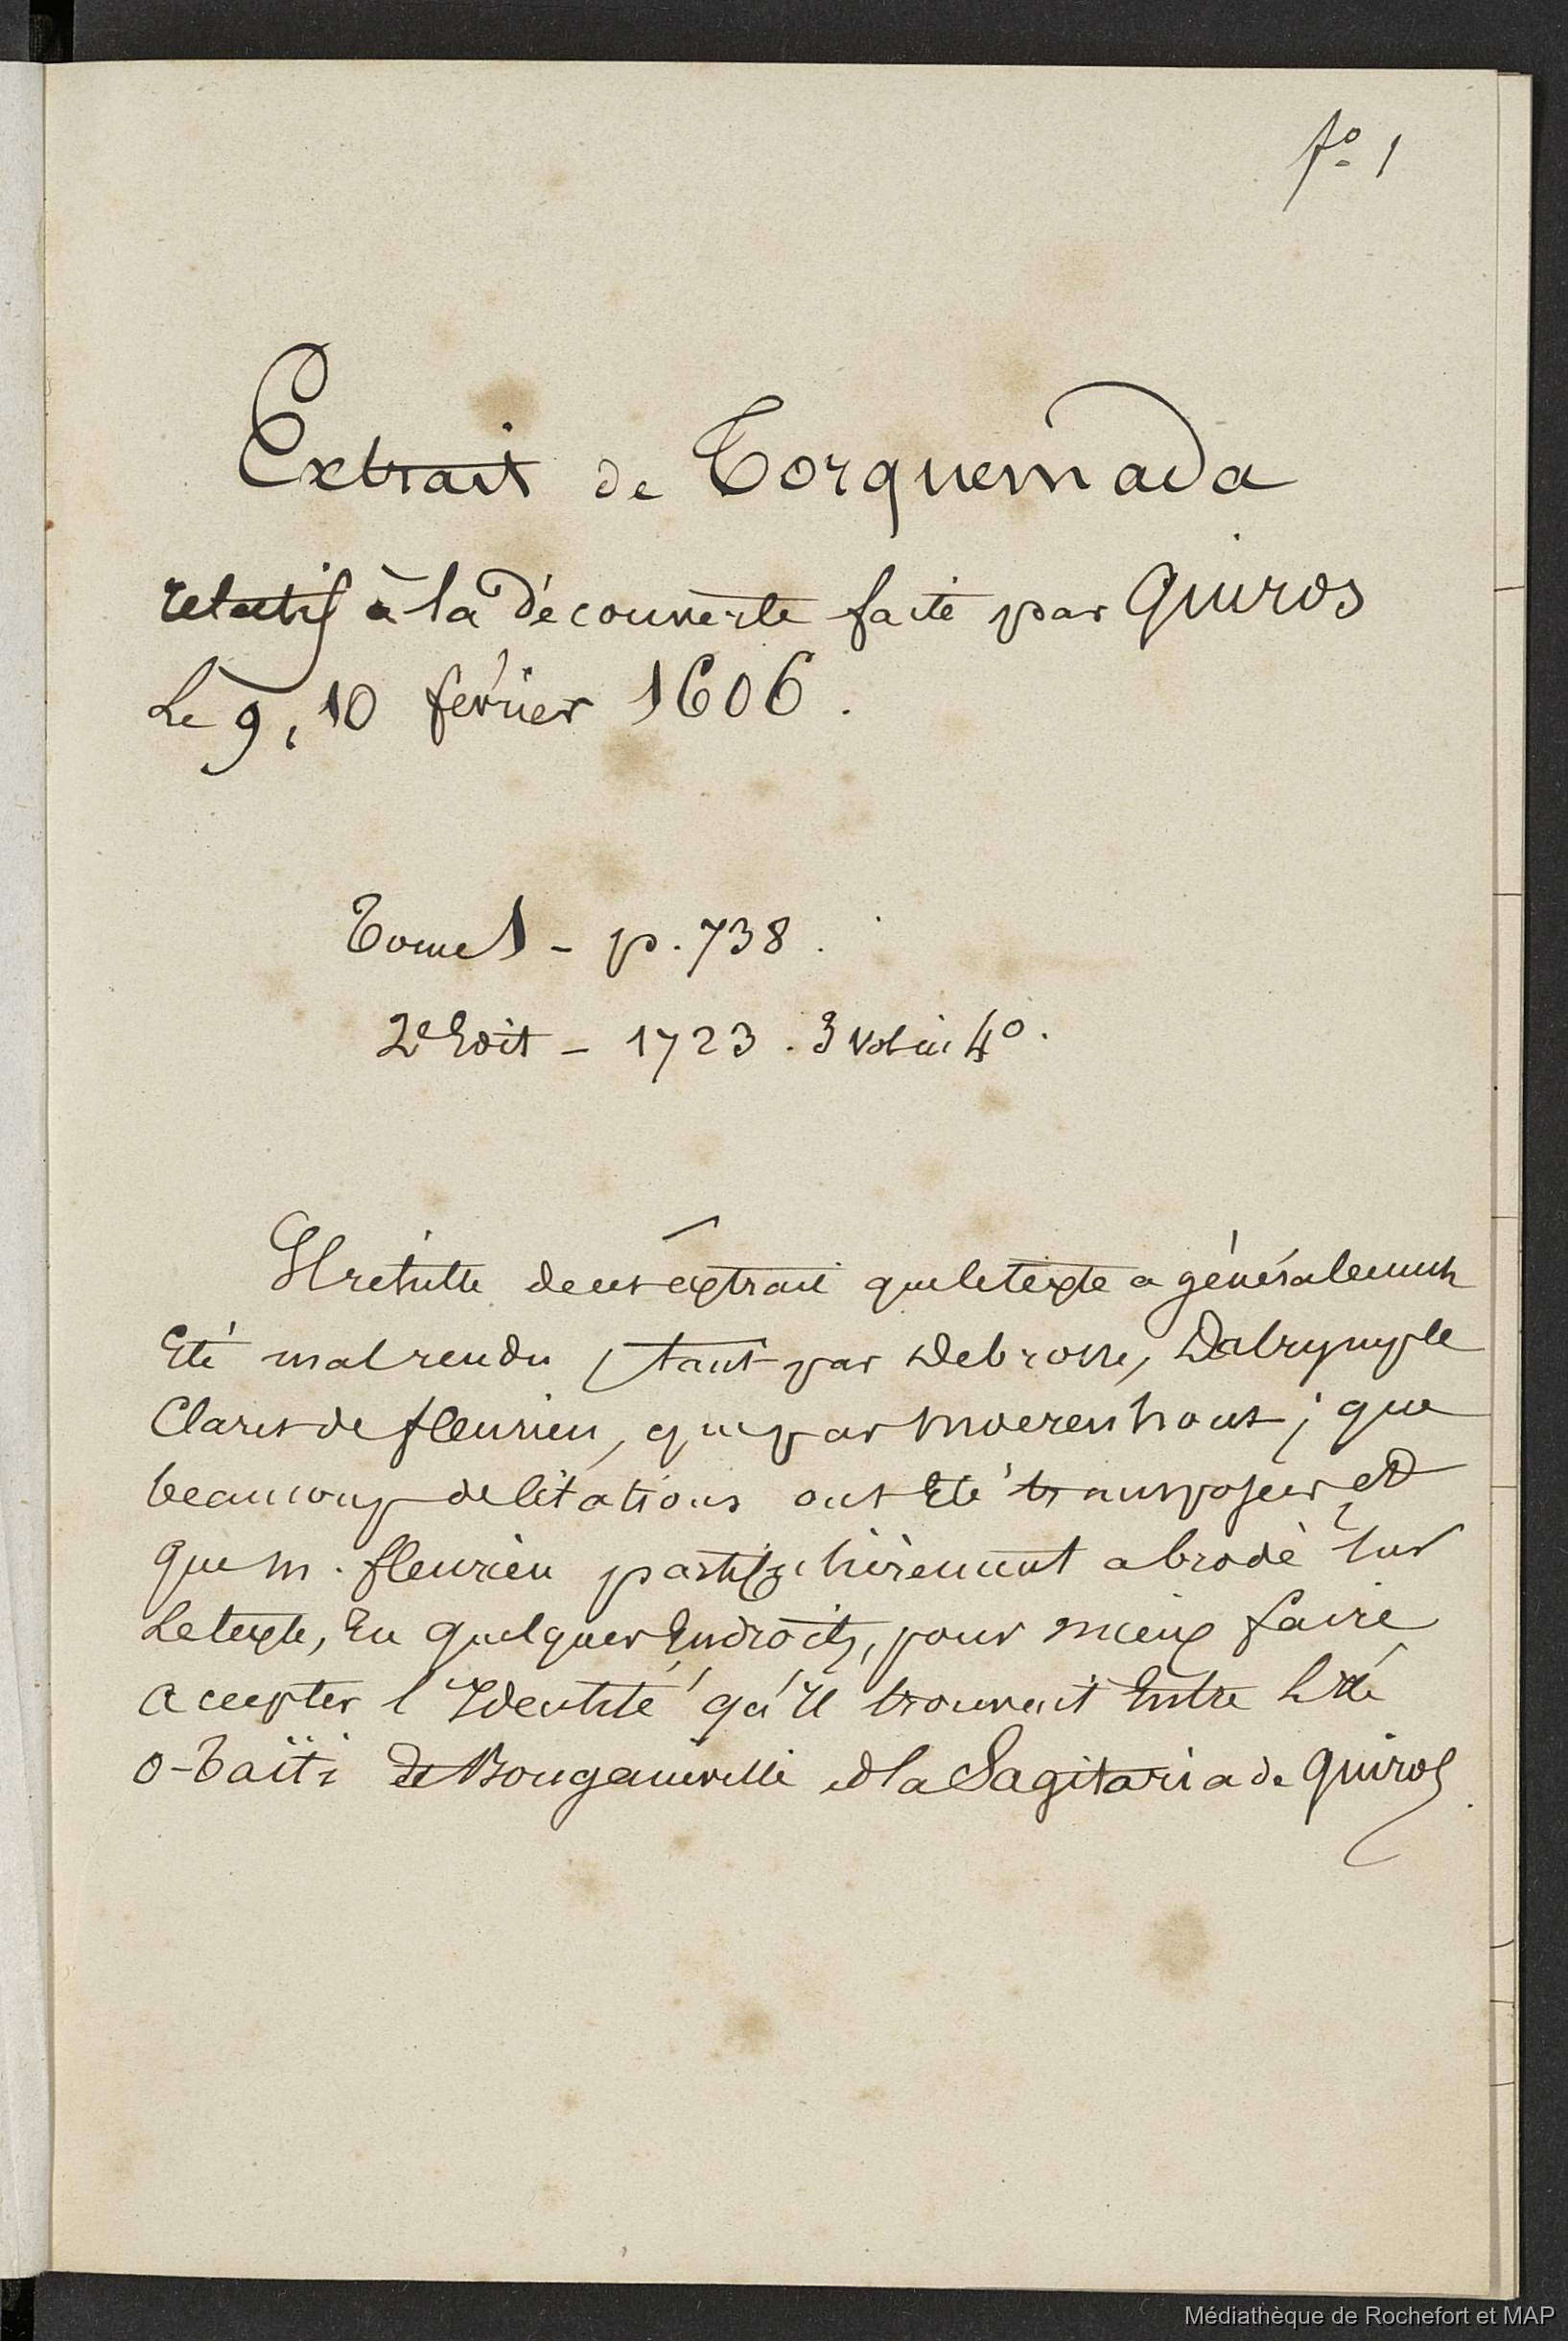 fo 1
Extrait de Torquemada
relatif à la découverte faite par Quiros
Le 9, 10 février 1606.
Tome 1 - p. 738.
2e Edit - 1723. 3 vol in 4o.
Il résulte de cet extrait que le texte a généralement
Eté mal rendu, tant par Debrosse, Dalrymple
Claret de fleurieu, que par Moerenhout; que
beaucoup de citations ont Eté transposées et
que M. fleurieu particulièrement a brodé sur
Le texte, En quelques Endroits, pour mieux faire
accepter l'Identité qu'Il trouvait Entre L'île
O-Taïti de Bougainville et la Sagitaria de Quiros.
Médiathèque de Rochefort et MAP